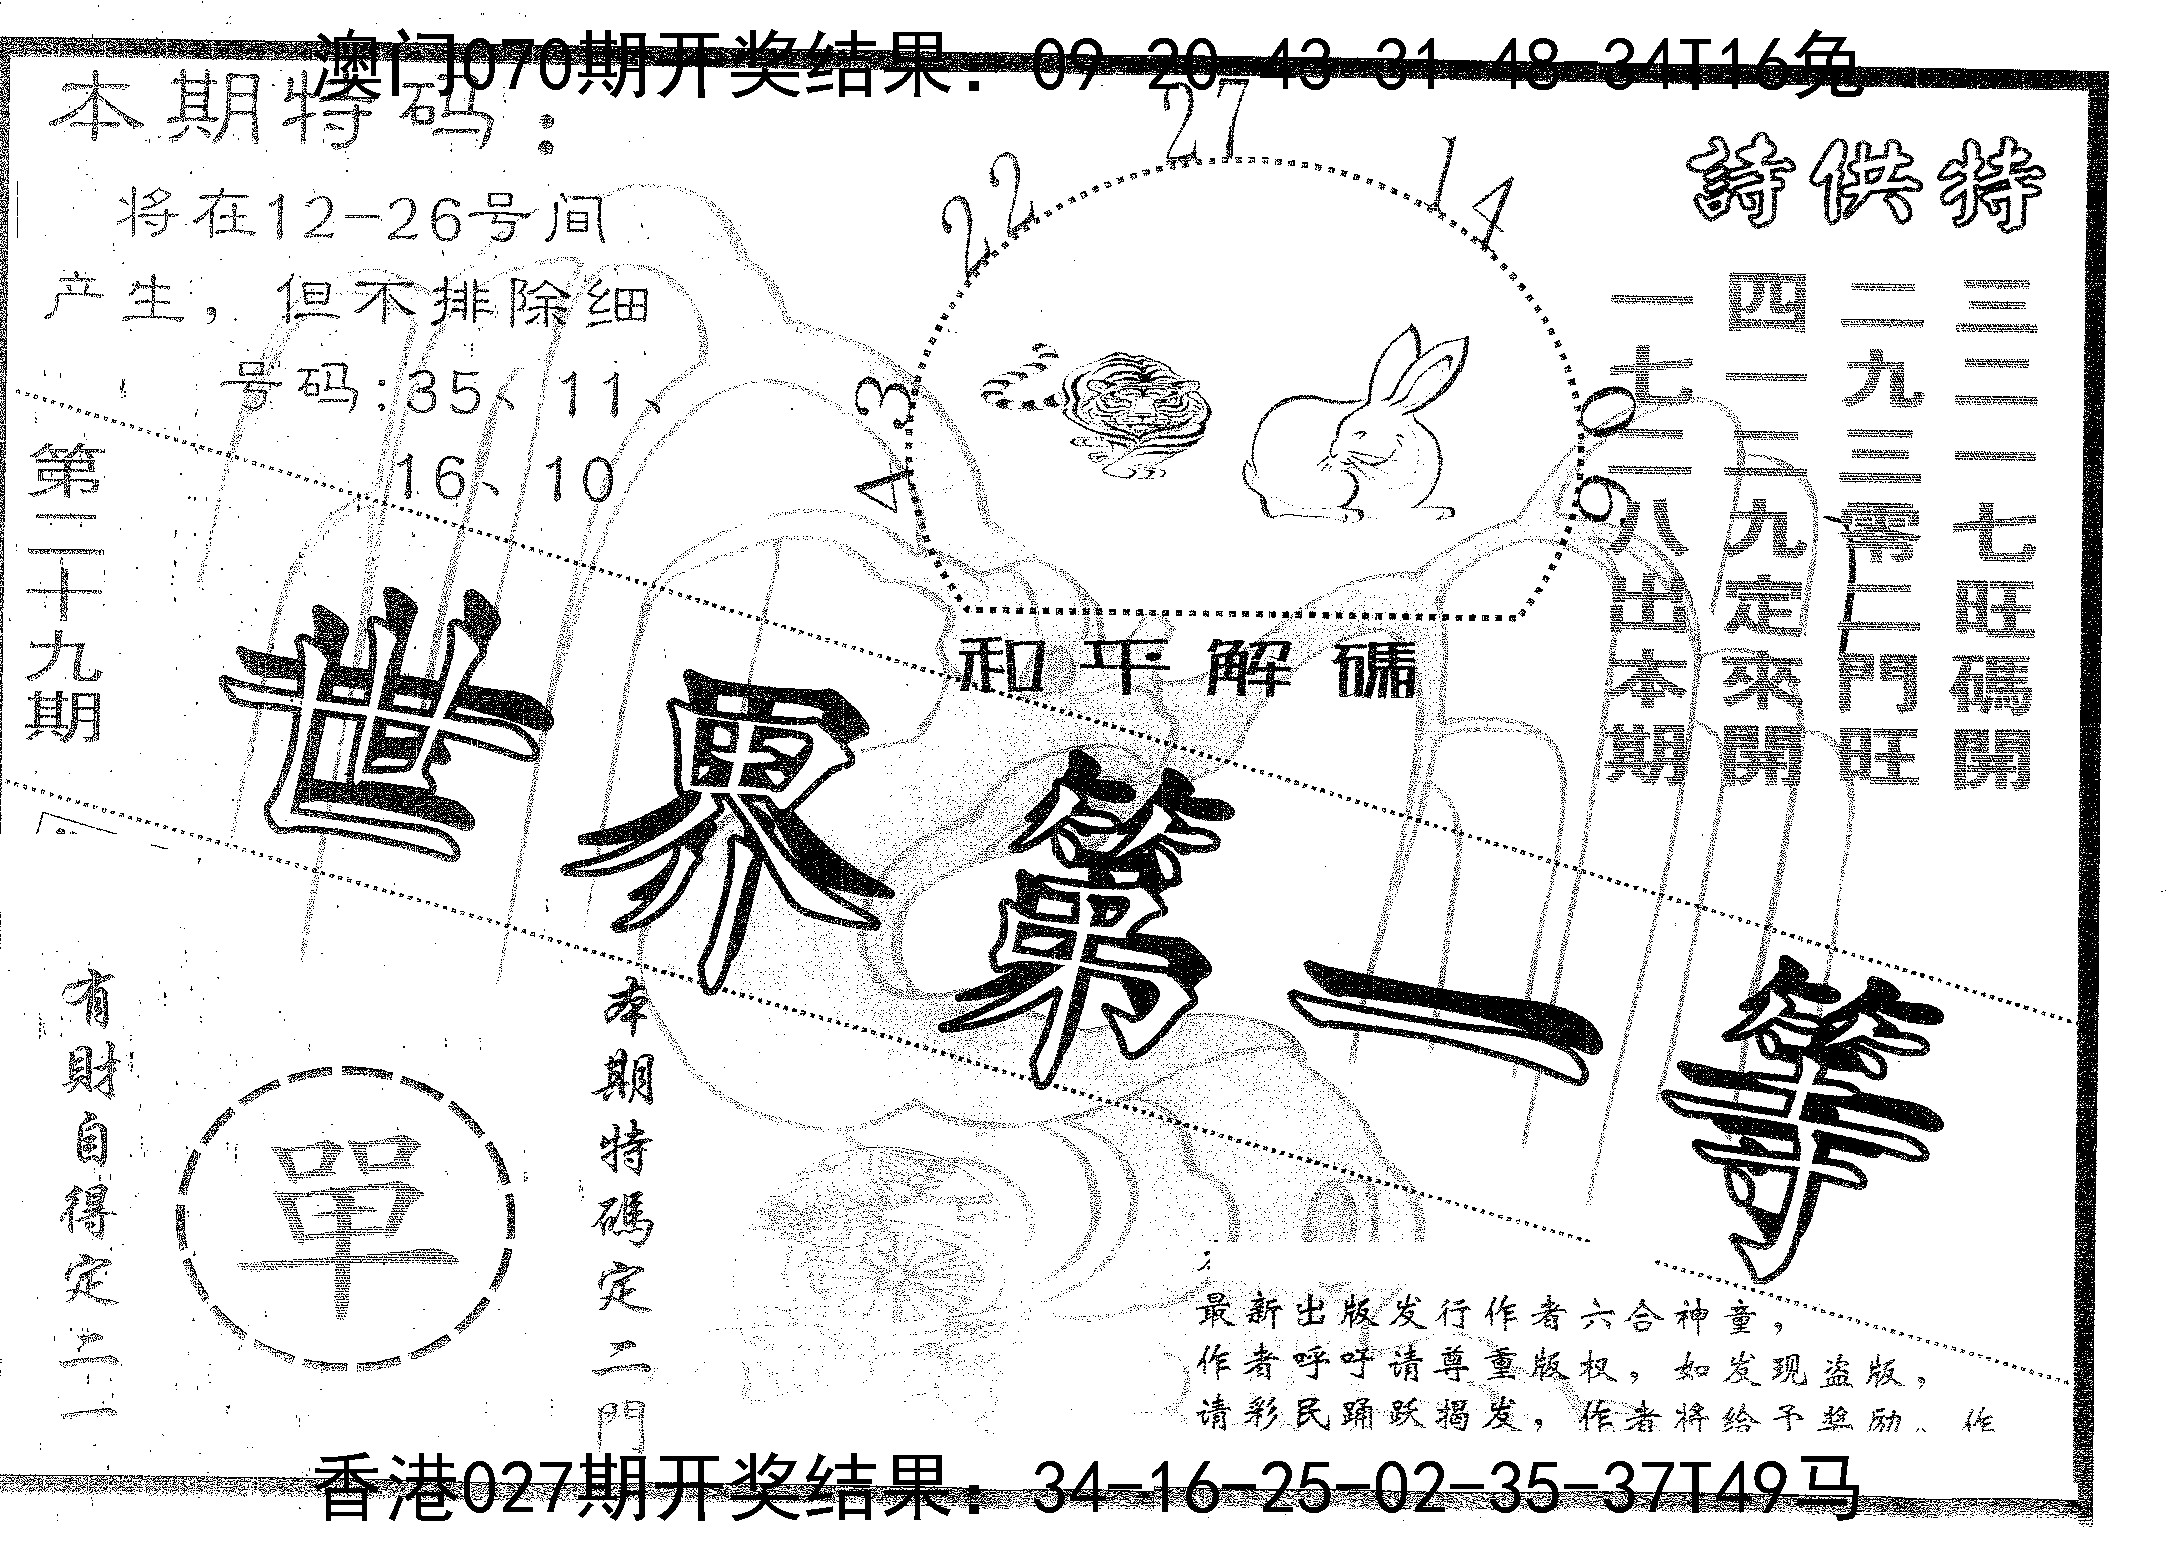 澳门070期开奖结果：09-20-43-31-48-34T16兔
本期特码：
将在12-26号间
产生，但不排除细
号码:35、11、
16、10
第二十九期
43
22
27
14
09
和平解碼
詩供特
三三一七旺碼開
二九三零二門旺
四一二九定來開
一七二八出本期
世界第一等
有財自得定二一
單
本期特碼定二門
最新出版发行作者六合神童，
作者呼吁请尊重版权，如发现盗版，
请彩民踊跃揭发，作者将给予奖励、作
香港027期开奖结果：34-16-25-02-35-37T49马